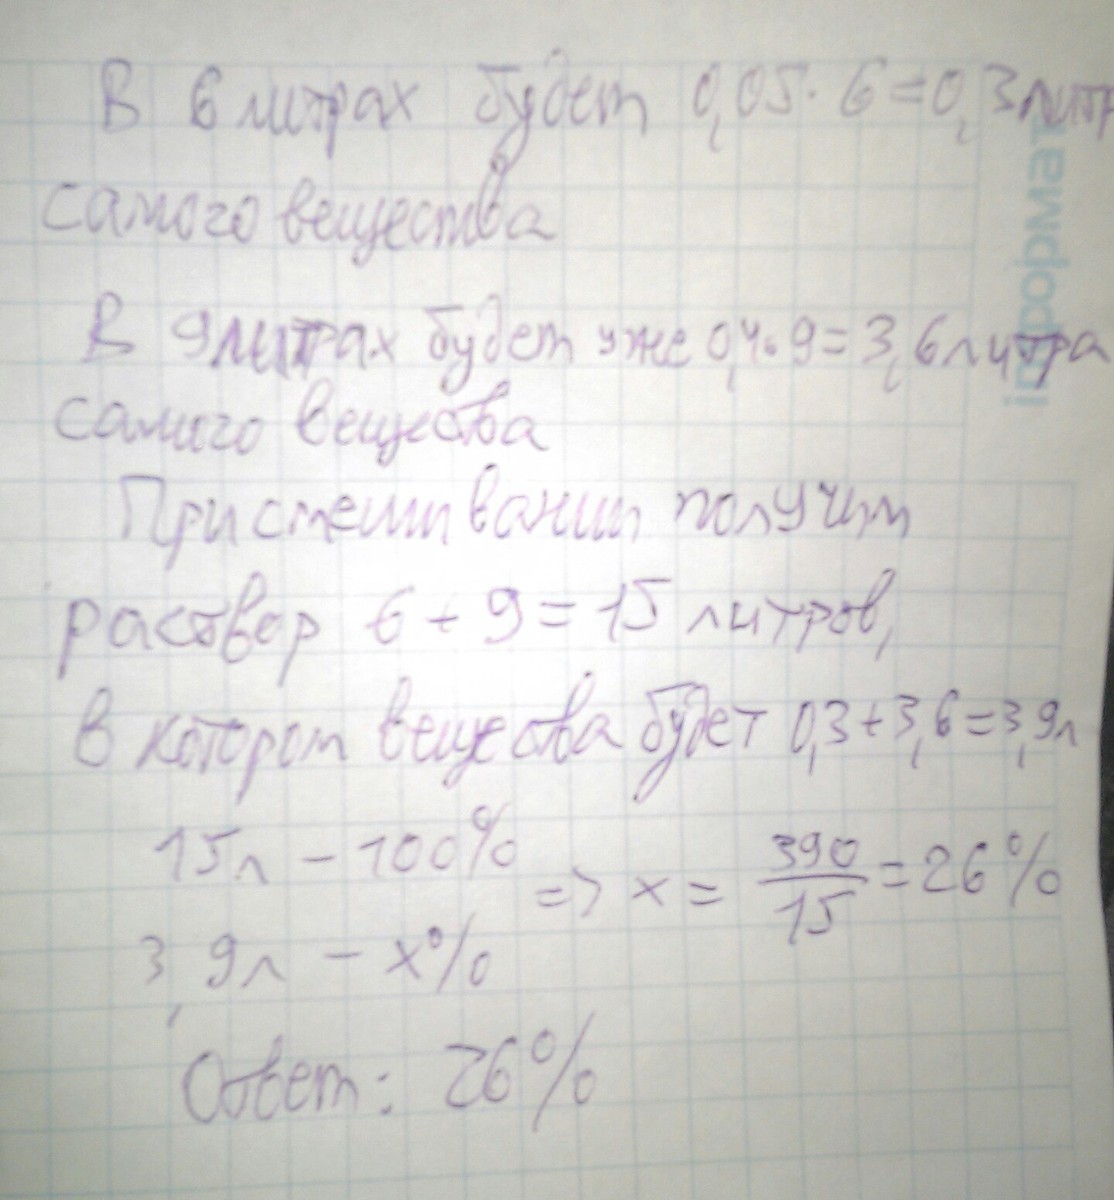 В 6 литрах будет 0,05·6=0,3литр
самого вещества
В 9литрах будет уже 0,4·9=3,6литра
самого вещества
При смешивании получим
раствор 6+9=15 литров,
в котором вещества будет 0,3+3,6=3,9л
15л – 100%
=> x = 390/15 = 26%
3,9л – x%
Ответ: 26%
информат